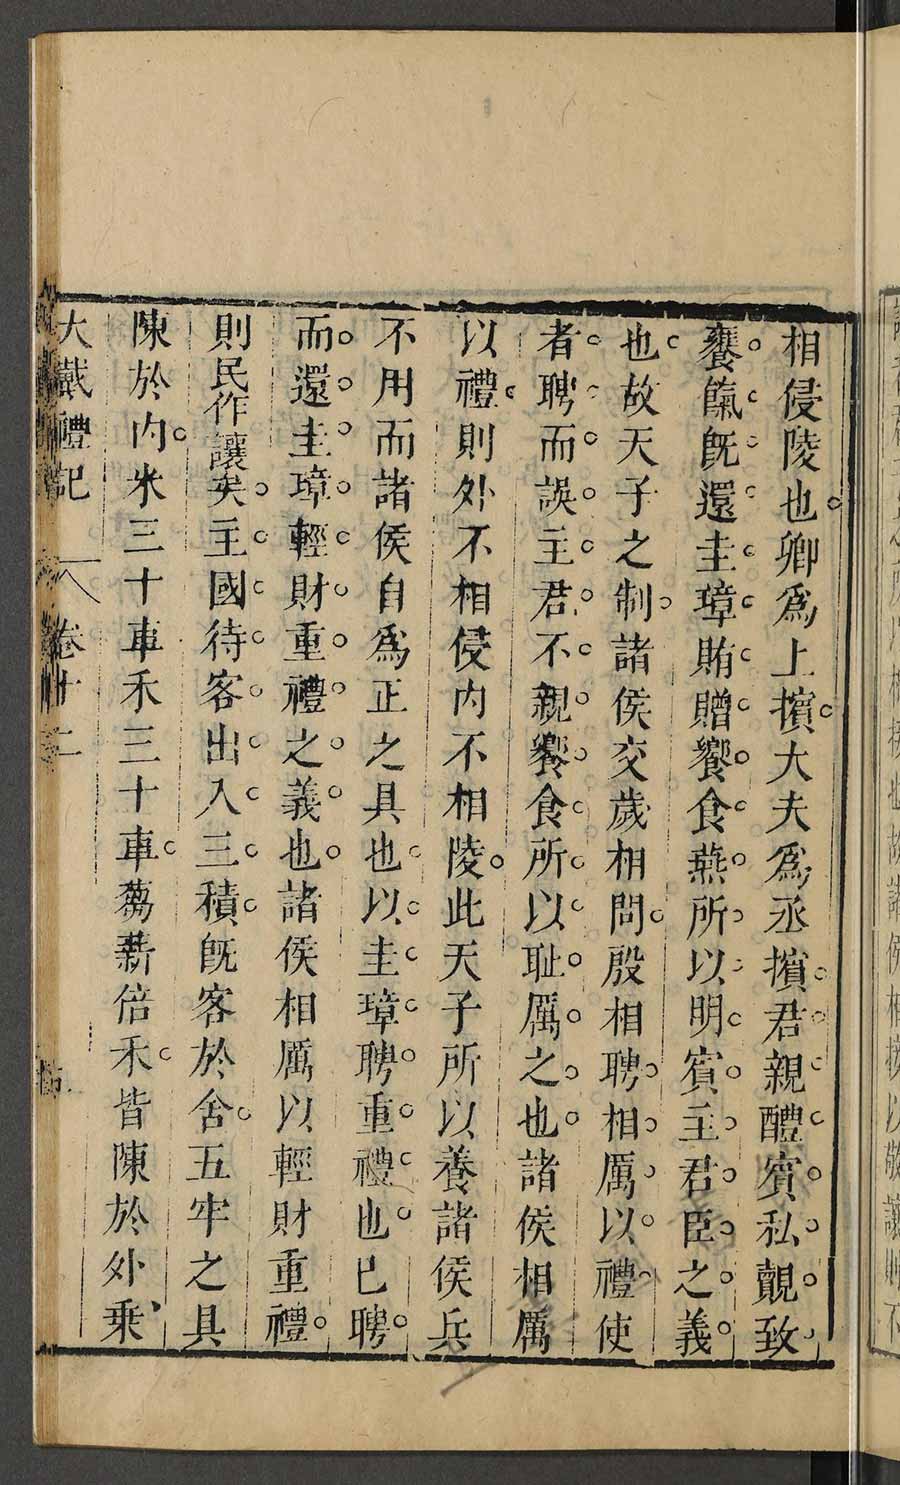 相侵陵也卿爲上擯大夫爲丞擯君親醴賓私覿致
饔餼旣還圭璋賄贈饗食燕所以明賓主君臣之義
也故天子之制諸侯交歲相問殷相聘相厲以禮使
者聘而誤主君不親饗食所以耻厲之也諸侯相厲
以禮則外不相侵内不相陵此天子所以養諸侯兵
不用而諸侯自爲正之具也以圭璋聘重禮也已聘
而還圭璋輕財重禮之義也諸侯相厲以輕財重禮
則民作讓矣主國待客出入三積旣客於舍五牢之具
陳於内米三十車禾三十車芻薪倍禾皆陳於外乗
大戴禮記 卷十二